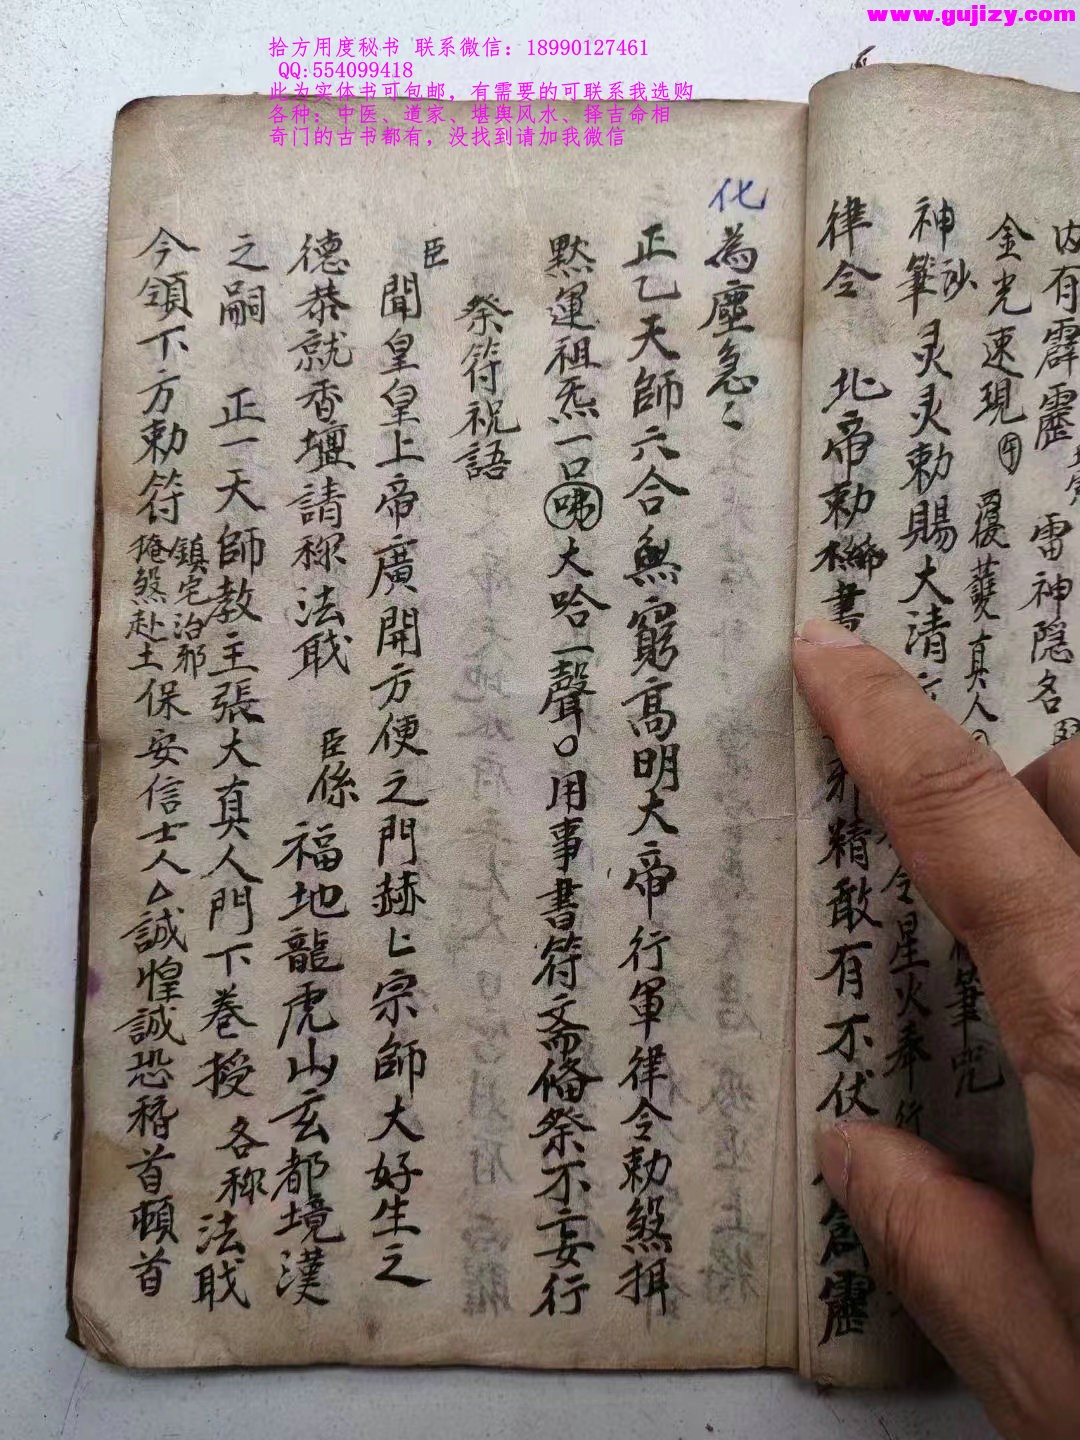 www.gujizy.com
拾方用度秘书 联系微信：18990127461
QQ:554099418
此为实体书可包邮，有需要的可联系我选购
各种；中医、道家、堪舆风水、择吉命相
奇门的古书都有，没找到请加我微信
内有霹靂
雷神隐名
金光速現
真人
筆咒
神筆灵灵勅賜大清
沙
令星火奉行
律令 北帝勅
書
邪精敢有不伏
霊
化為塵急〻
正乙天師六合無窮高明大帝行軍律令勅煞揖
默運祖炁一口咈大哈一聲〇用事書符斋俻祭不妄行
祭符祝語
臣
聞皇皇上帝廣開方便之門赫〻宗師大好生之
德恭就香壇請称法职 臣係福地龍虎山玄都境漢
之嗣 正一天師教主張大真人門下卷授 各称法职
今領下方勅符 鎮宅治邪 掩煞赴土 保安信士人厶誠惶誠恐稽首頓首